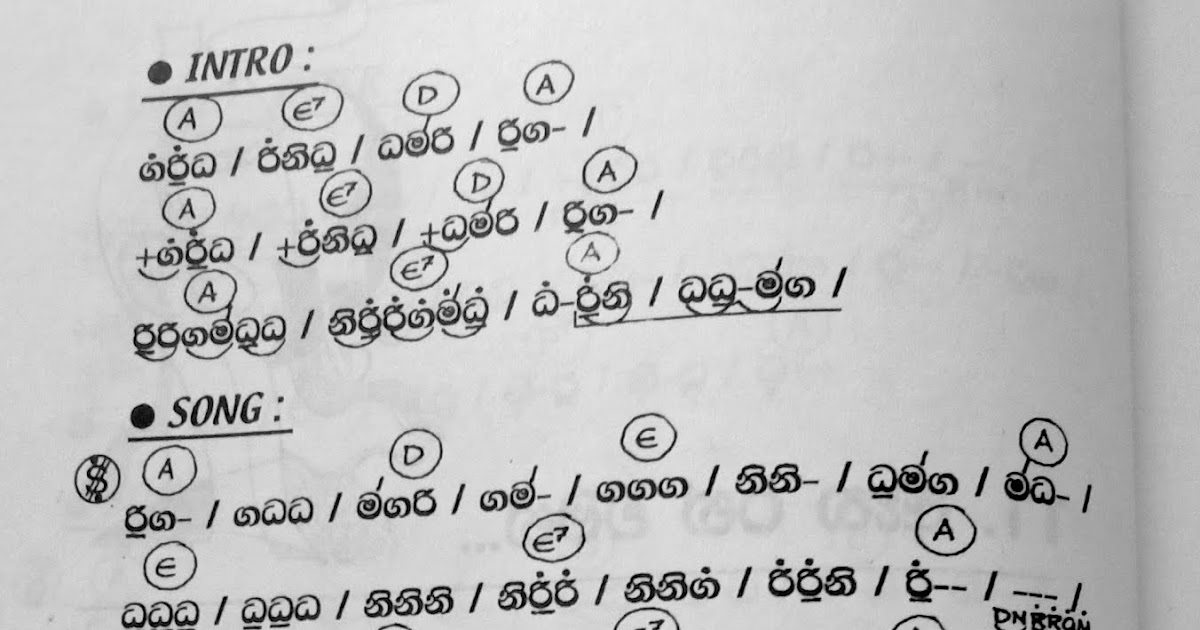 ● INTRO :
A E7 D A
ගंරි̱ंධ / රිंනිධු / ධම်රි / රි̱ග- /
A E7 D A
+ගंරි̱ंධ / +රි̱ंනිධු / +ධම်රි / රි̱ග- /
A E7 A
රි̱රිගම්ධුධ / නිරි̱ंරිंගंම්ंධුं / ධं-රි̱ंනි / ධධු-ම්ග /
● SONG :
A D E A
රි̱ග- / ගධධ / ම්ගරි / ගම්- / ගගග / නිනි- / ධු̱ම්ග / ම්ධ- /
E E7 A
ධධුධු / ධුධුධ / නිනිනි / නිරි̱ंරිं / නිනිගं / රිंරි̱ंනි / රි̱ं-- / --- /